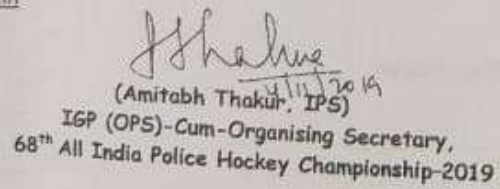 (Amitabh Thakur, IPS)
IGP (OPS)-Cum-Organising Secretary,
68th All India Police Hockey Championship-2019